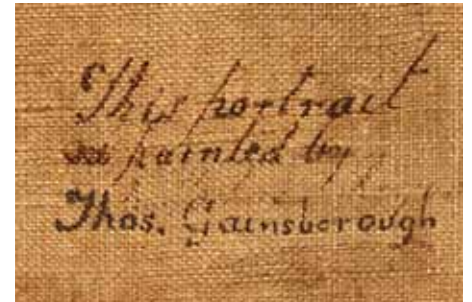 This portrait
painted by
Thos. Gainsborough